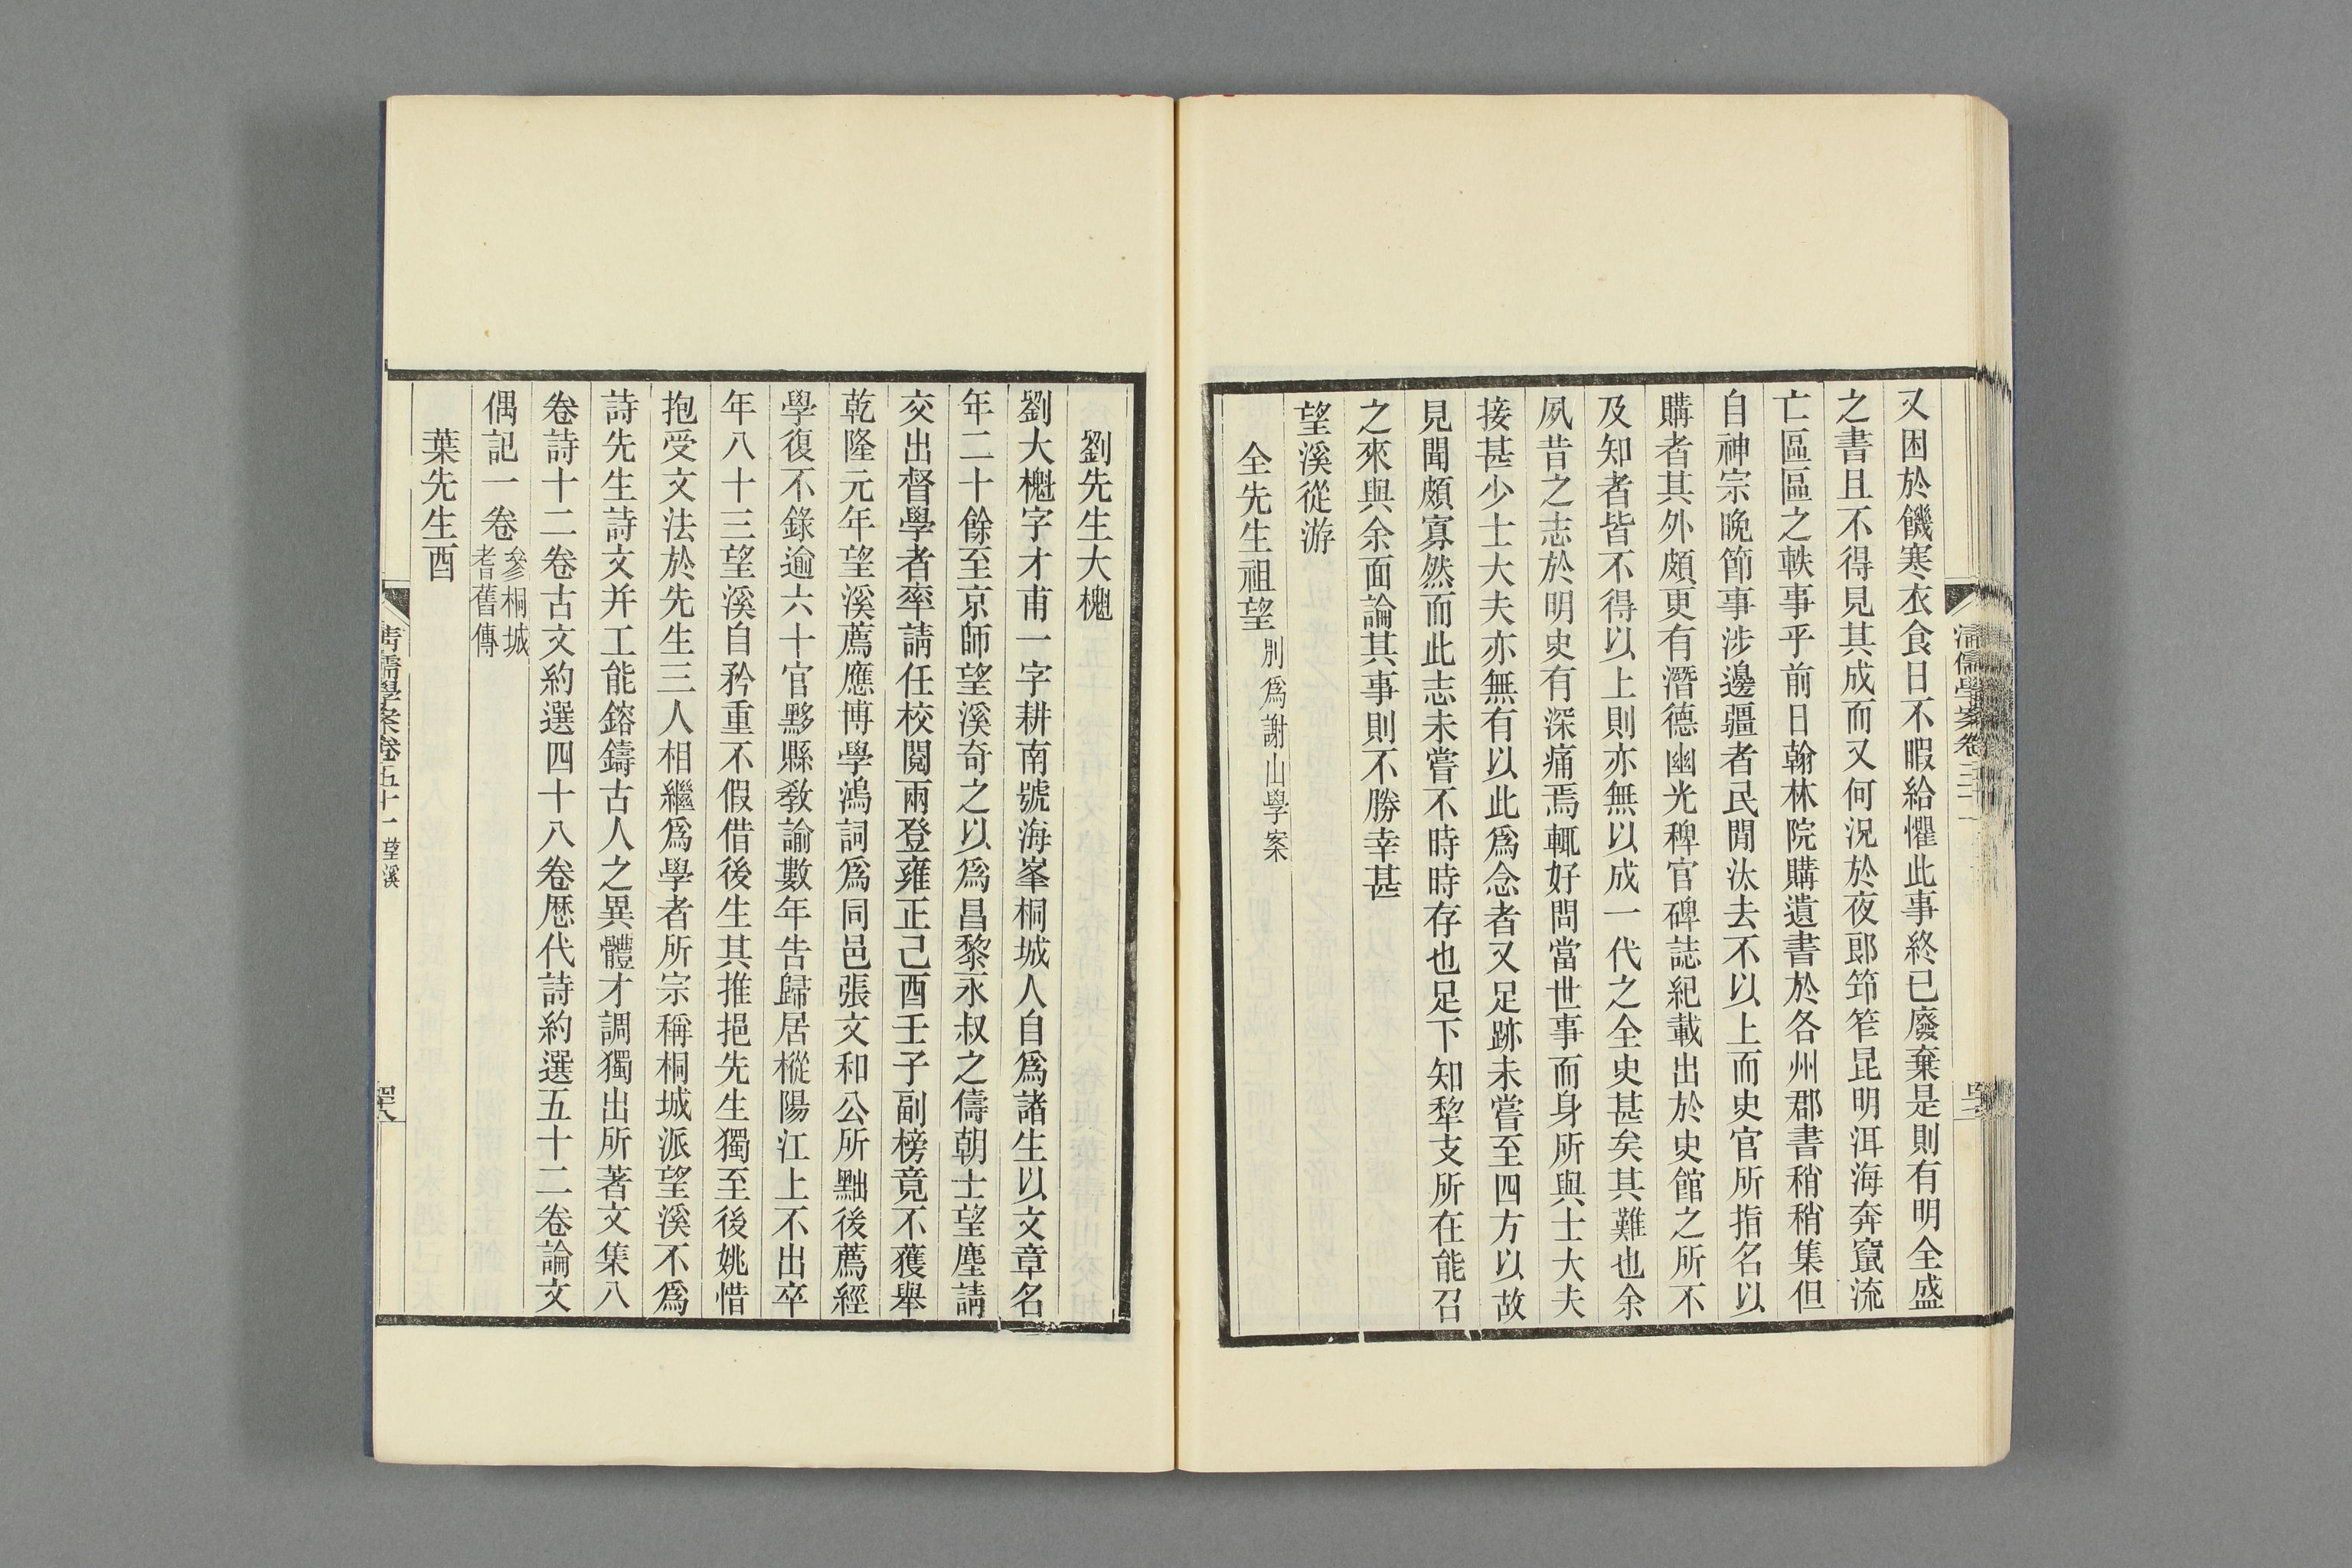 又困於饑寒衣食日不暇給懼此事終已廢棄是則有明全盛
之書且不得見其成而又何況於夜郎筇笮昆明洱海奔竄流
亡區區之軼事乎前日翰林院購遺書於各州郡書稍稍集但
自神宗晚節事涉邊疆者民閒汰去不以上而史官所指名以
購者其外頗更有潛德幽光稗官碑誌紀載出於史館之所不
及知者皆不得以上則亦無以成一代之全史甚矣其難也余
夙昔之志於明史有深痛焉輒好問當世事而身所與士大夫
接甚少士大夫亦無有以此爲念者又足跡未嘗至四方以故
見聞頗寡然而此志未嘗不時時存也足下知犂支所在能召
之來與余面論其事則不勝幸甚
望溪從游
全先生祖望別爲謝山學案
劉先生大櫆
劉大櫆字才甫一字耕南號海峯桐城人自爲諸生以文章名
年二十餘至京師望溪奇之以爲昌黎永叔之儔朝士望塵請
交出督學者率請任校閱兩登雍正己酉壬子副榜竟不獲舉
乾隆元年望溪薦應博學鴻詞爲同邑張文和公所黜後薦經
學復不錄逾六十官黟縣敎諭數年告歸居樅陽江上不出卒
年八十三望溪自矜重不假借後生其推挹先生獨至後姚惜
抱受文法於先生三人相繼爲學者所宗稱桐城派望溪不爲
詩先生詩文幷工能鎔鑄古人之異體才調獨出所著文集八
卷詩十二卷古文約選四十八卷歷代詩約選五十二卷論文
偶記一卷參桐城耆舊傳
葉先生酉
清儒學案卷五十一 望溪